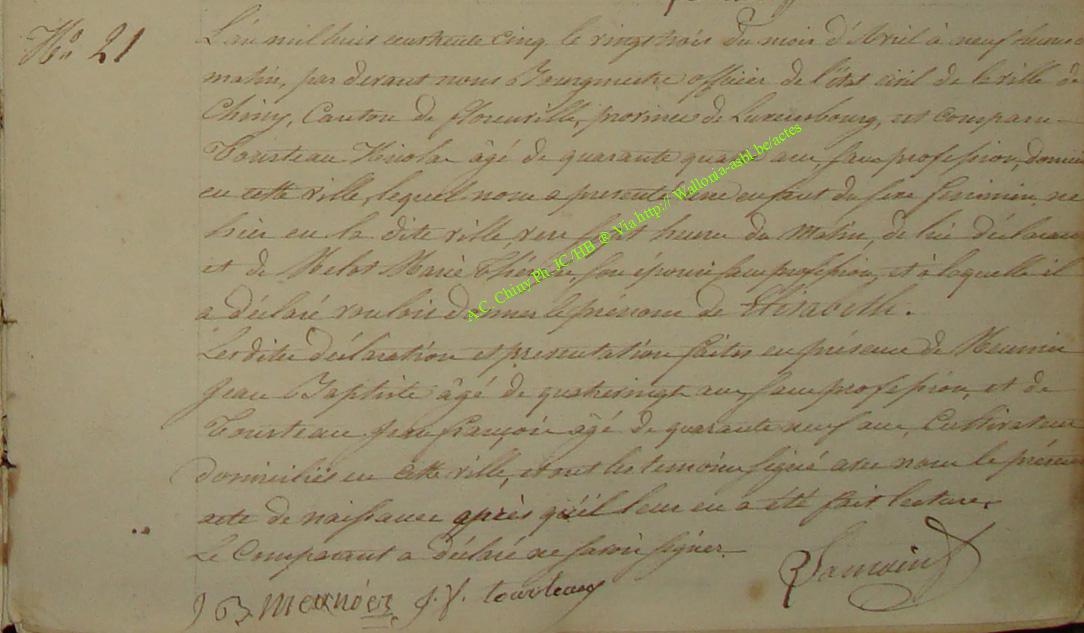 No 21
L'an mil huit cent trente cinq le vingt trois du mois d'Avril à neuf heures
matin, par devant nous Bourgmestre officier de l'état civil de la ville de
Chiny, Canton de florenville, province de Luxembourg, est comparu
Tourteau Nicolas âgé de quarante quatre ans sans profession, domicilié
en cette ville, lequel nous a presenté une enfant du sexe féminin, née
hier en la dite ville, vers sept heures du Matin, de lui déclarant
et de Melot Marie Thérèse, son épouse sans profession, et à laquelle il
a déclaré vouloir donner le prénom de Elisabeth.
Lesdites déclaration et presentation faites en présence de Meunier
Jean Baptiste âgé de quatrevingt ans sans profession, et de
Tourteau Jean françois âgé de quarante neuf ans, Cultivateur
domiciliés en cette ville, et ont les temoins signé avec nous le présent
acte de naissance après qu'il leur en a été fait lecture.
Le Comparant a déclaré ne savoir signer.
J B meunier J. f. tourteau
A.C. Chiny Ph. JC /HB @ Via http:// Wallonia-asbl.be/actes